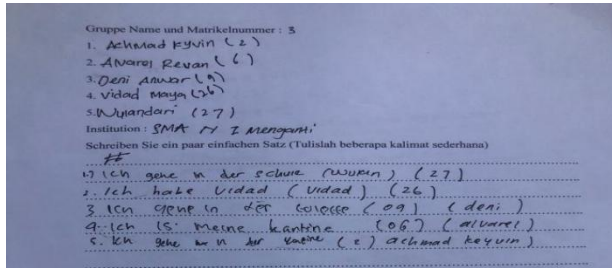 Gruppe Name und Matrikelnummer : 3
1. Achmad Kyvin (2)
2. Alvarel Revan (6)
3. Deni Anwar (9)
4. Vidad Maya (26)
5. Wulandari (27)
Institution : SMA N I Menganti
Schreiben Sie ein paar einfachen Satz (Tulislah beberapa kalimat sederhana)
1.) Ich gehe in der schule (wulan) (27)
2. Ich habe Vidad (Vidad) (26)
3 Ich gehe in der (09) (deni)
4. Ich is Meine kantine (06) (alvarel)
5. Ich gehe in der kantine (2) achmad keyvin)